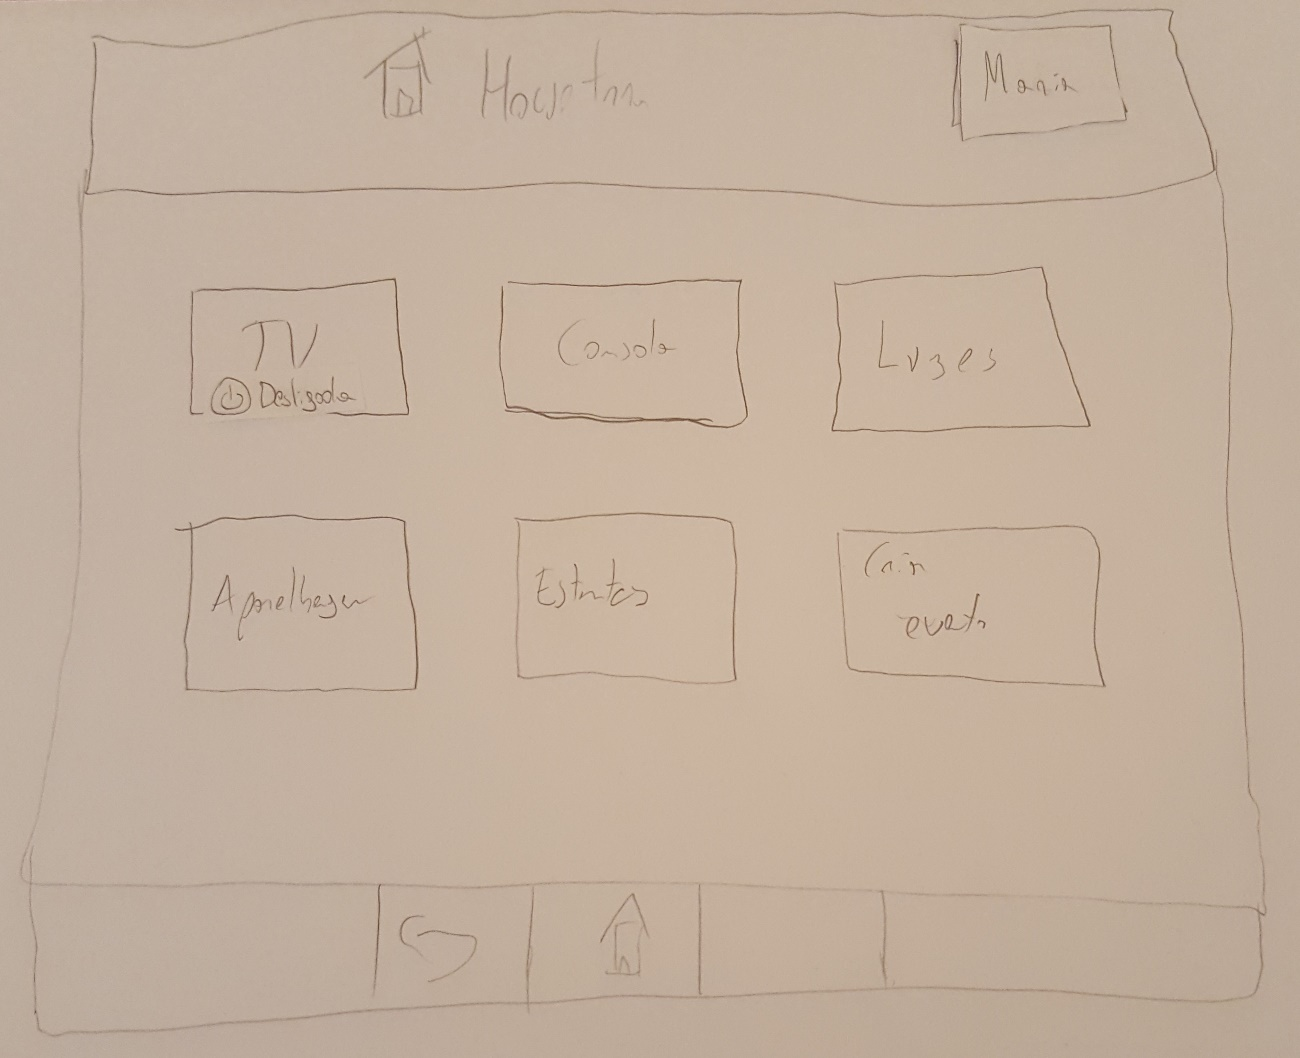 Maria
TV
Desligada
Consola
Luzes
Aparelhagem
Estratos
Criar
evento